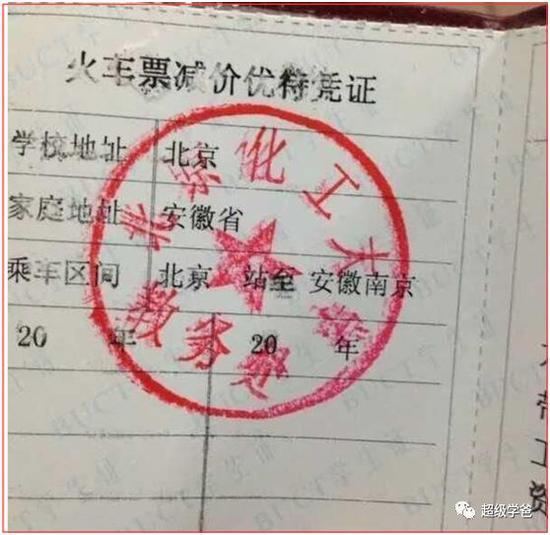 火车票减价优待凭证
学校地址 北京
家庭地址 安徽省
乘车区间 北京 站至 安徽南京
20 年 20 年
北京化工大学
教务处
BUCT学生证
工
资
超级学爸